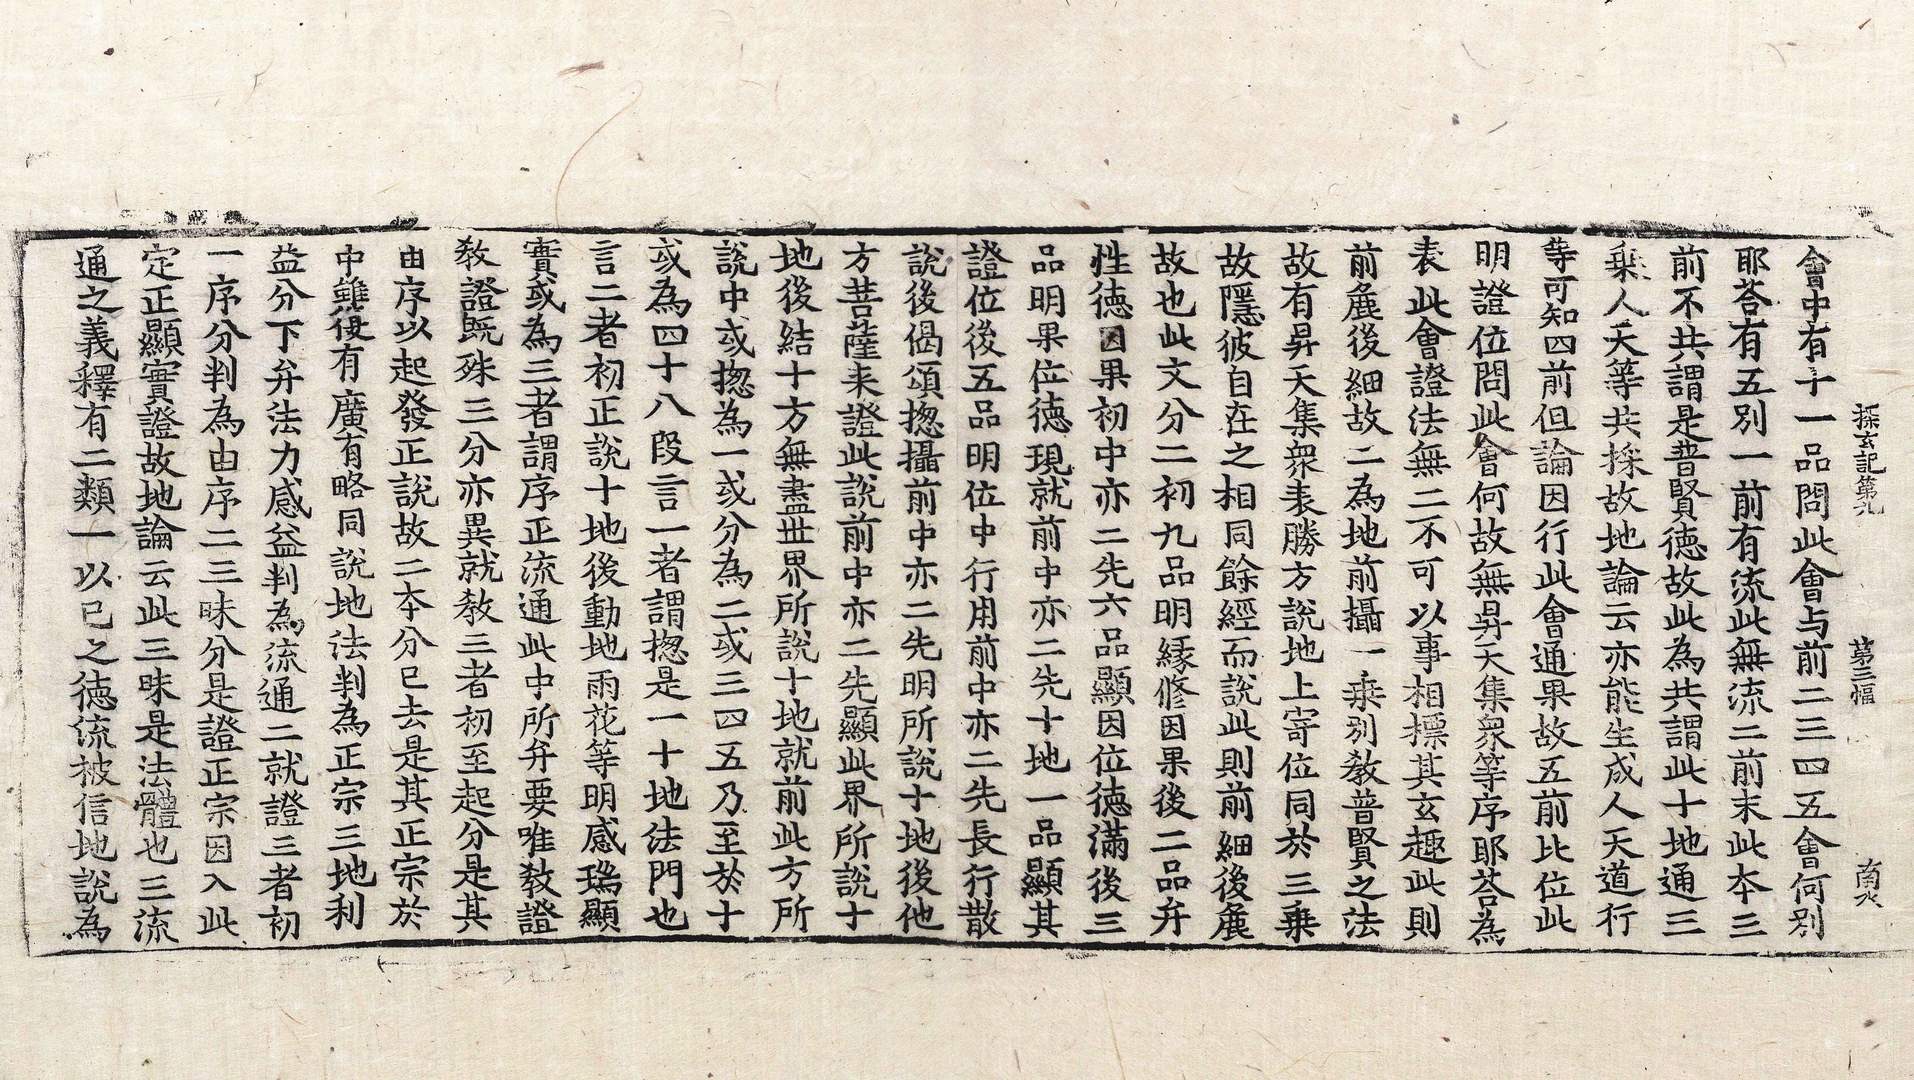 探玄記第九 第三幅 南水
會中有十一品問此會与前二三四五會何別
耶荅有五別一前有流此無流二前末此本三
前不共謂是普賢德故此為共謂此十地通三
乗人天等共採故地論云亦能生成人天道行
等可知四前但論因行此會通果故五前比位此
明證位問此會何故無昇天集衆等序耶荅為
表此會證法無二不可以事相標其玄趣此則
前麁後細故二為地前攝一乗別教普賢之法
故有昇天集衆表勝方說地上寄位同於三乗
故隱彼自在之相同餘經而說此則前細後麁
故也此文分二初九品明縁修因果後二品弁
性德因果初中亦二先六品顯因位德滿後三
品明果位德現就前中亦二先十地一品顯其
證位後五品明位中行用前中亦二先長行散
說後偈頌揔攝前中亦二先明所說十地後他
方菩薩来證此說前中亦二先顯此界所說十
地後結十方無盡世界所說十地就前此方所
說中或揔為一或分為二或三四五乃至於十
或為四十八段言一者謂揔是一十地法門也
言二者初正說十地後動地雨花等明感瑞顯
實或為三者謂序正流通此中所弁要唯教證
教證既殊三分亦異就教三者初至起分是其
由序以起發正說故二本分已去是其正宗於
中雖復有廣有略同說地法判為正宗三地利
益分下弁法力感益判為流通二就證三者初
一序分判為由序二三昧分是證正宗因入此
定正顯實證故地論云此三昧是法體也三流
通之義釋有二類一以已之德流被信地說為